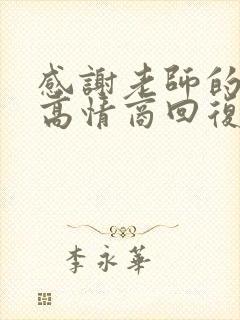 感謝老師的
高情商回復
李永華